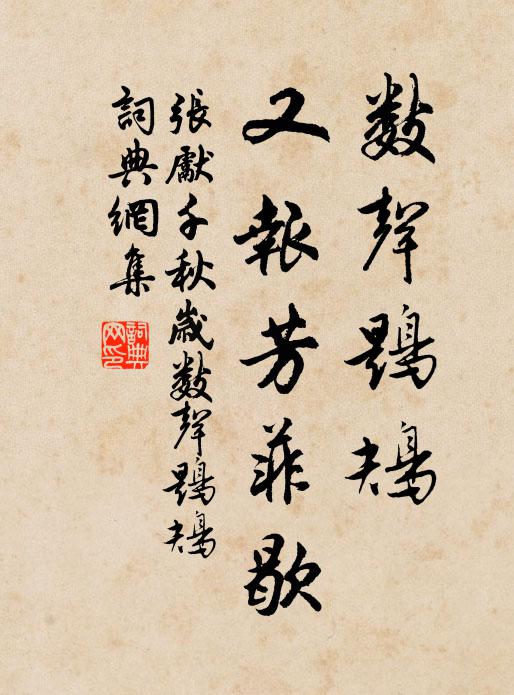 數聲鶗鴂
又報芳菲歇
張獻千秋歲數聲鶗鴂
詞典網集
詞典网印